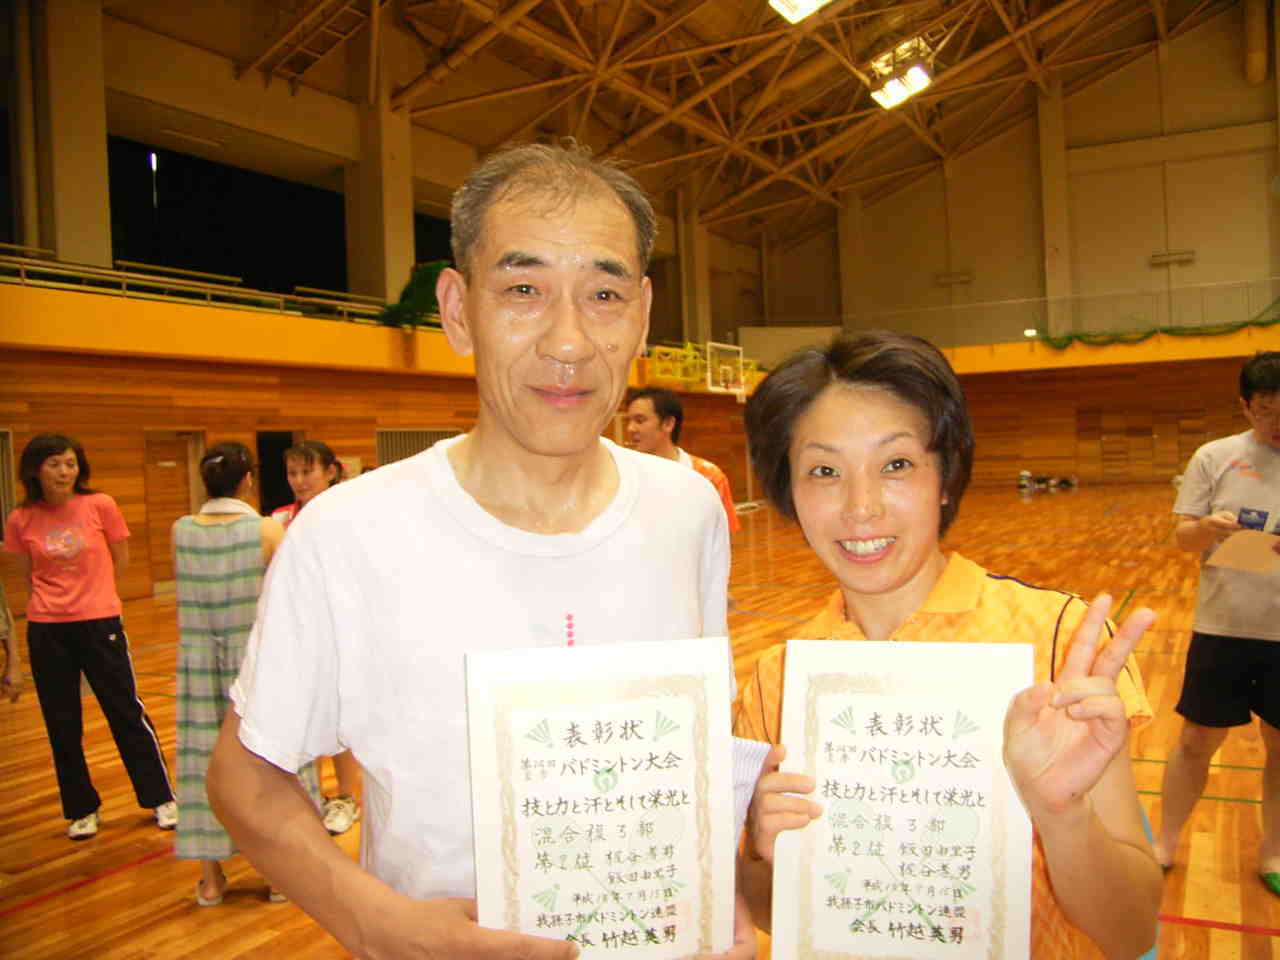 表彰状
第26回
全市 バドミントン大会
技と力と汗とそして栄光と
混合複3部
第2位 板谷孝男
飯田由里子
平成18年7月15日
我孫子市バドミントン連盟
会長 竹越英男
表彰状
バドミントン大会
技と力と汗とそして栄光と
混合複3部
第2位 飯田由里子
板谷孝男
平成18年7月15日
我孫子市バドミントン連盟
会長 竹越英男